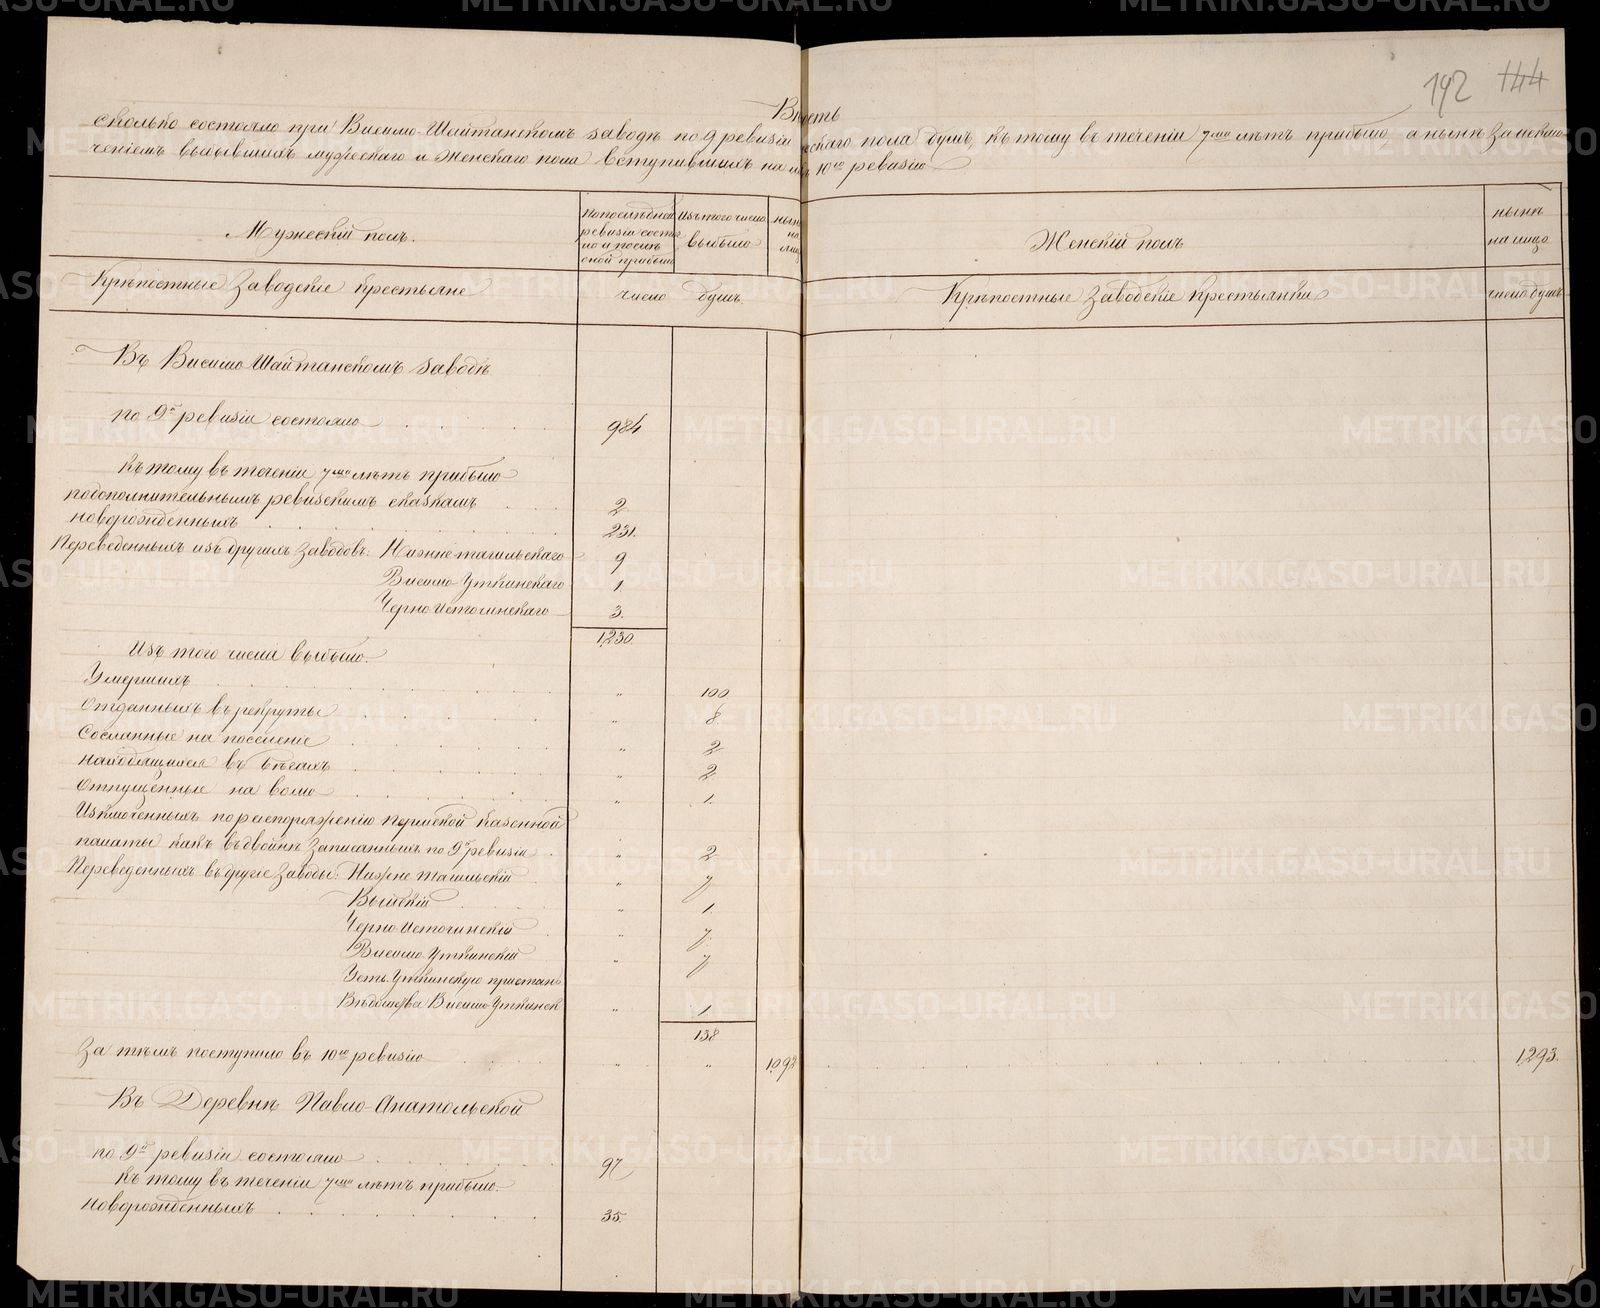 192 144
Вѣсть
сколько состояло при Висимо-Шайтанскомъ заводѣ по 9 ревизіи мужескаго пола душъ, къ тому въ теченіи 7ми лѣтъ прибыло, а нынѣ за исклю-
ченіемъ выбывшихъ мужескаго и женскаго пола вступившихъ на 10ю ревизію
Мужескій полъ.
По последней ревизіи состо яло и после оной прибыло
Изъ того числа выбыло
ныне на лицо
Женскій полъ
нынѣ на лицо
Крѣпостные Заводскіе крестьяне
число душъ.
Крѣпостные Заводскіе Крестьянки
число душъ
Въ Висимо Шайтанскомъ заводѣ
по 9й ревизіи состояло 984
Къ тому въ теченіи 7ми лѣтъ прибыло
по дополнительнымъ ревизскимъ сказкамъ 2
новорожденныхъ 231.
Переведенныхъ изъ другихъ Заводовъ: Нижнетагильскаго 9
Висимо Уткинскаго 1.
Черно Источинскаго 3.
1230.
Изъ того числа выбыло.
Умершихъ " 100
Отданныхъ въ рекруты " 8.
Сосланные на поселеніе " 2
находящихся въ бегахъ " 2
Отпущенные на волю " 1.
Изключенныхъ по распоряженію Пермской Казенной
палаты какъ вдвойнѣ Записанныхъ по 9й ревизіи " 2
Переведенныхъ въ другіе Заводы: Нижне Тагильскій " 7
Выйскій " 1.
Черно Источинскій " 7.
Висимо Уткинскій " 7
Усть Уткинскую пристань
Висимо Уткинск " 1
138
За тѣмъ поступило въ 10ю ревизію " " 1092 1293.
Въ Деревнѣ Павло-Анатольской
по 9й ревизіи состояло 97
Къ тому въ теченіи 7ми лѣтъ прибыло.
новорожденныхъ 35.
METRIKI.GASO-URAL.RU